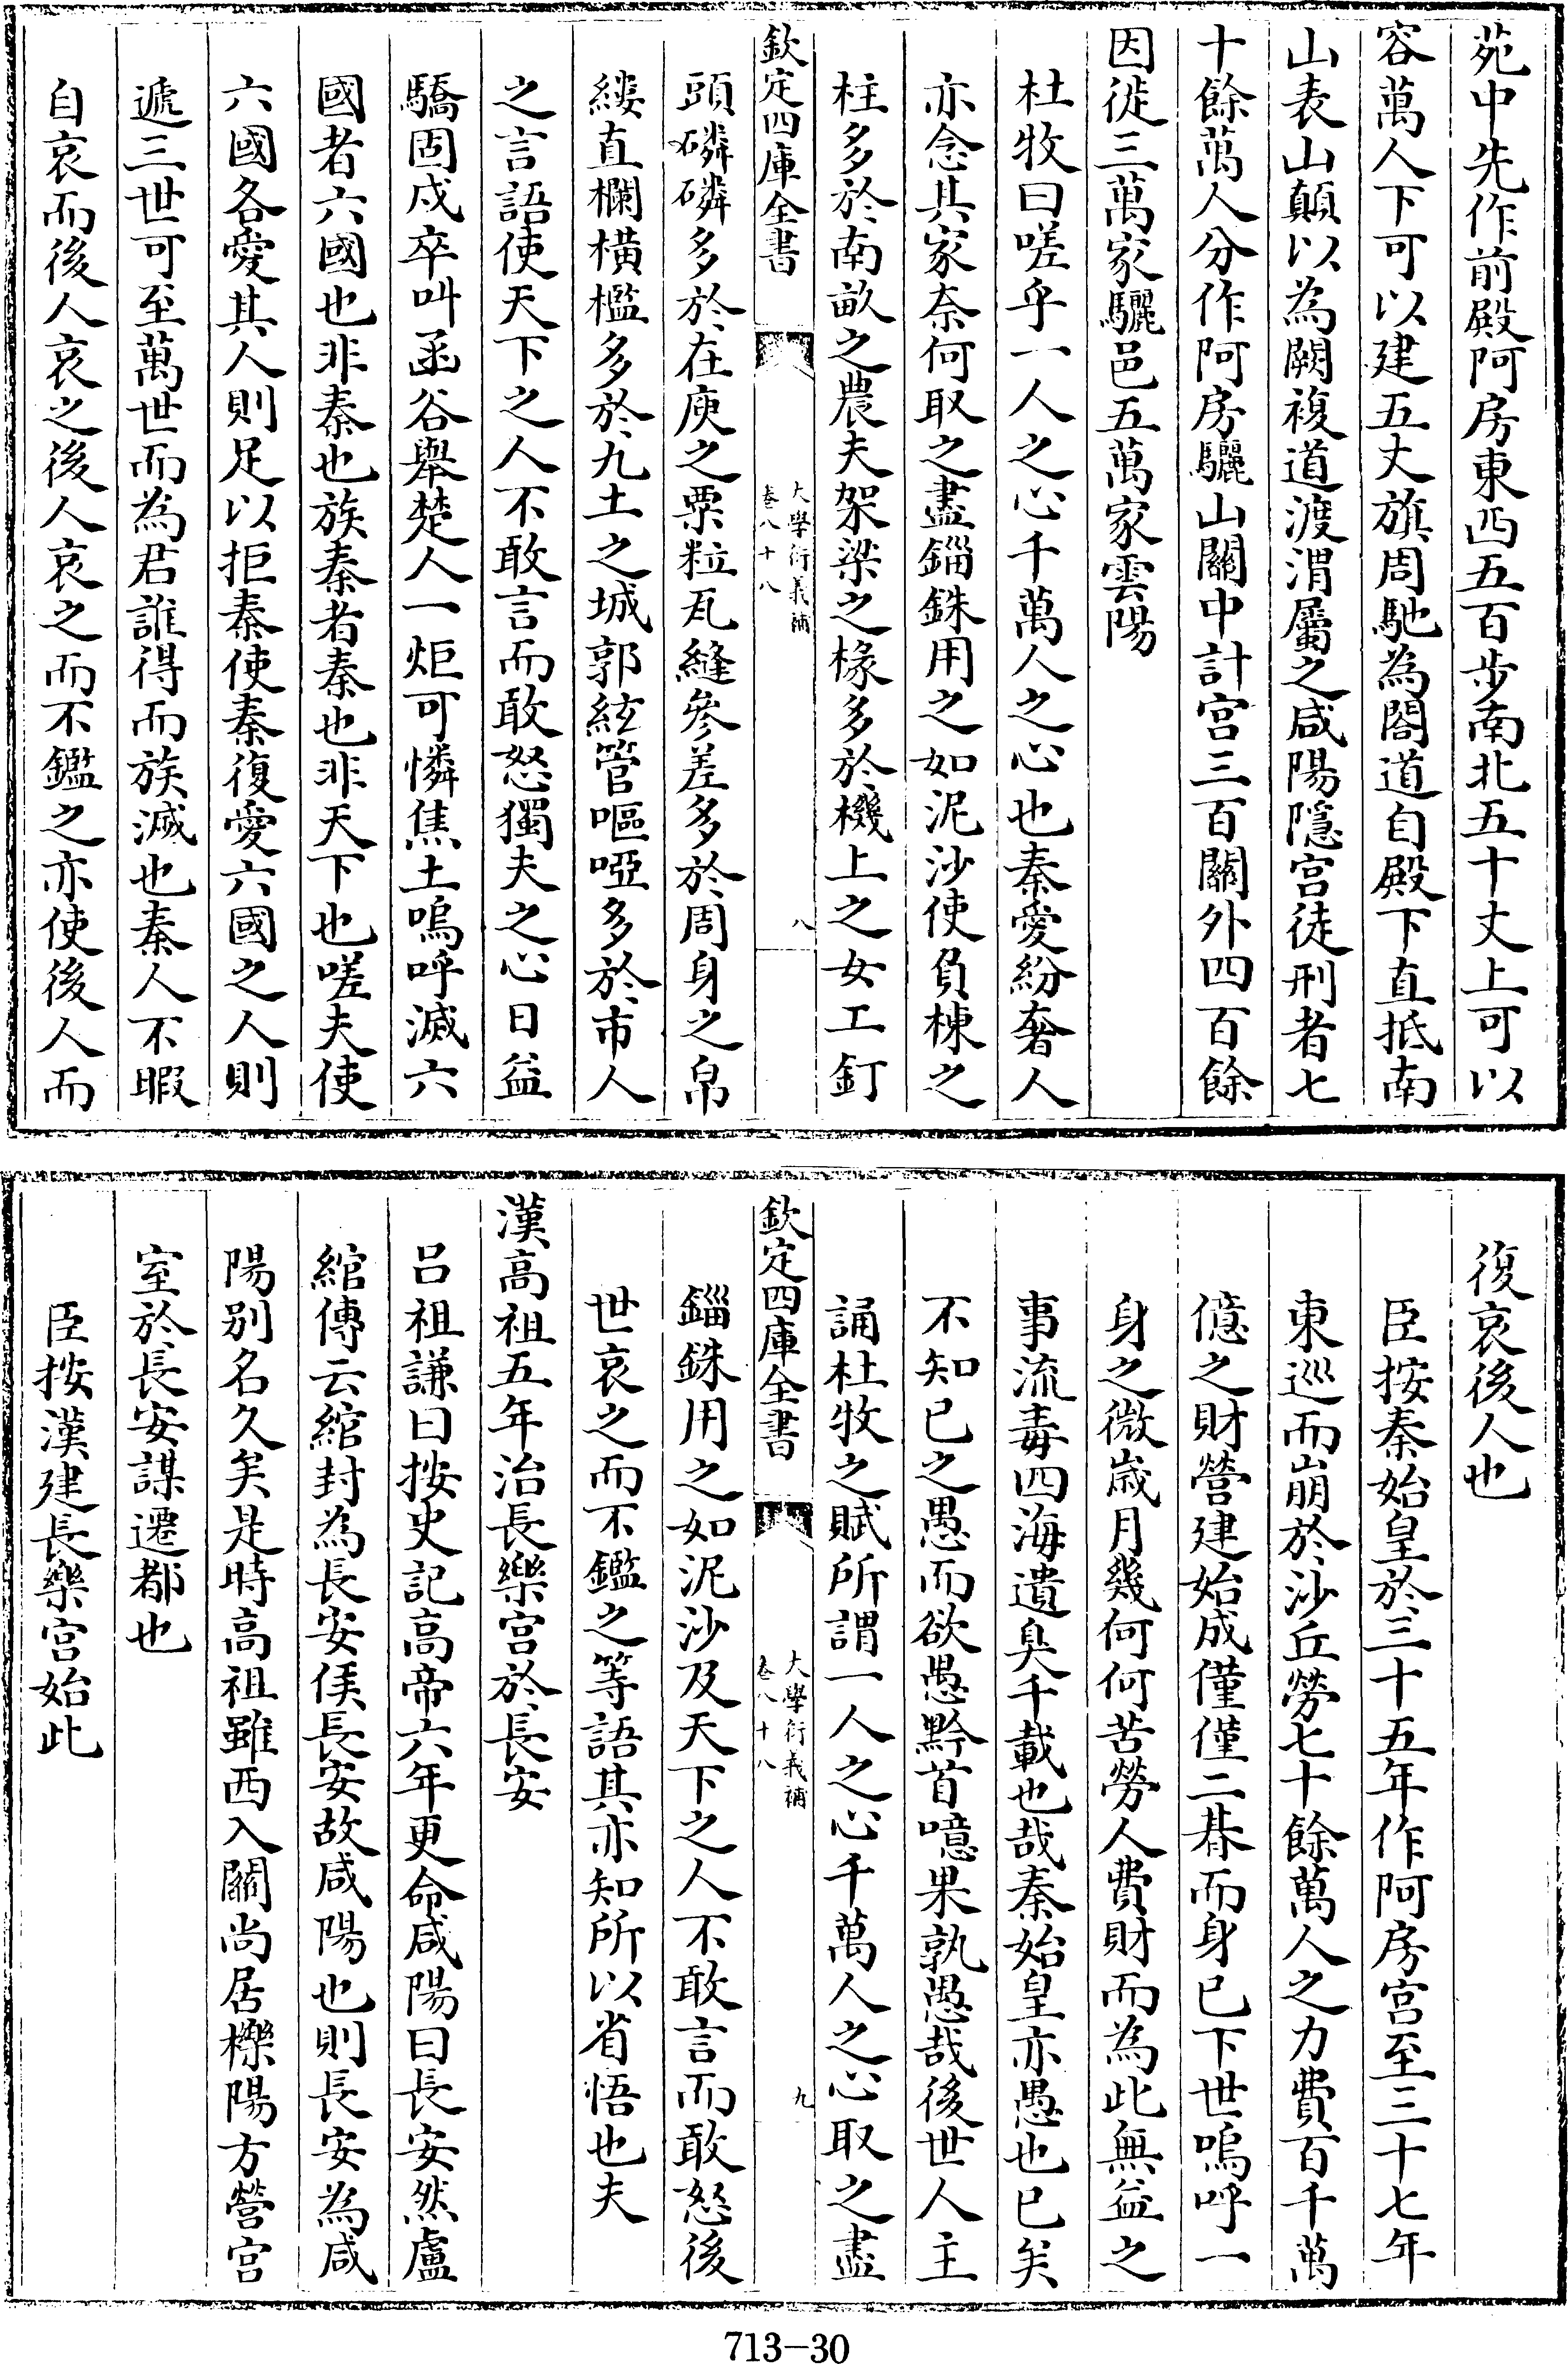 苑中先作前殿阿房東西五百步南北五十丈上可以
容萬人下可以建五丈旗周馳為閣道自殿下直抵南
山表山顛以為闕複道渡渭屬之咸陽隱宫徒刑者七
十餘萬人分作阿房驪山關中計宫三百關外四百餘
因徙三萬家驪邑五萬家雲陽
杜牧曰嗟乎一人之心千萬人之心也秦愛紛奢人
亦念其家奈何取之盡錙銖用之如泥沙使負棟之
柱多於南畝之農夫架梁之椽多於機上之女工釘
欽定四庫全書
大學衍義補
卷八十八
八
頭磷磷多於在庾之粟粒瓦縫參差多於周身之帛
縷直欄橫檻多於九土之城郭絃管嘔啞多於市人
之言語使天下之人不敢言而敢怒獨夫之心日益
驕固戍卒叫函谷舉楚人一炬可憐焦土嗚呼滅六
國者六國也非秦也族秦者秦也非天下也嗟夫使
六國各愛其人則足以拒秦使秦復愛六國之人則
遞三世可至萬世而為君誰得而族滅也秦人不暇
自哀而後人哀之後人哀之而不鑑之亦使後人而
復哀後人也
臣按秦始皇於三十五年作阿房宫至三十七年
東巡而崩於沙丘勞七十餘萬人之力費百千萬
億之財營建始成僅僅二朞而身已下世嗚呼一
身之微歲月幾何何苦勞人費財而為此無益之
事流毒四海遺臭千載也哉秦始皇亦愚也已矣
不知已之愚而欲愚黔首噫果孰愚哉後世人主
誦杜牧之賦所謂一人之心千萬人之心取之盡
欽定四庫全書
大學衍義補
卷八十八
九
錙銖用之如泥沙及天下之人不敢言而敢怒後
世哀之而不鑑之等語其亦知所以省悟也夫
漢高祖五年治長樂宫於長安
吕祖謙曰按史記高帝六年更命咸陽曰長安然盧
綰傳云綰封為長安侯長安故咸陽也則長安為咸
陽别名久矣是時高祖雖西入關尚居櫟陽方營宫
室於長安謀遷都也
臣按漢建長樂宫始此
713-30